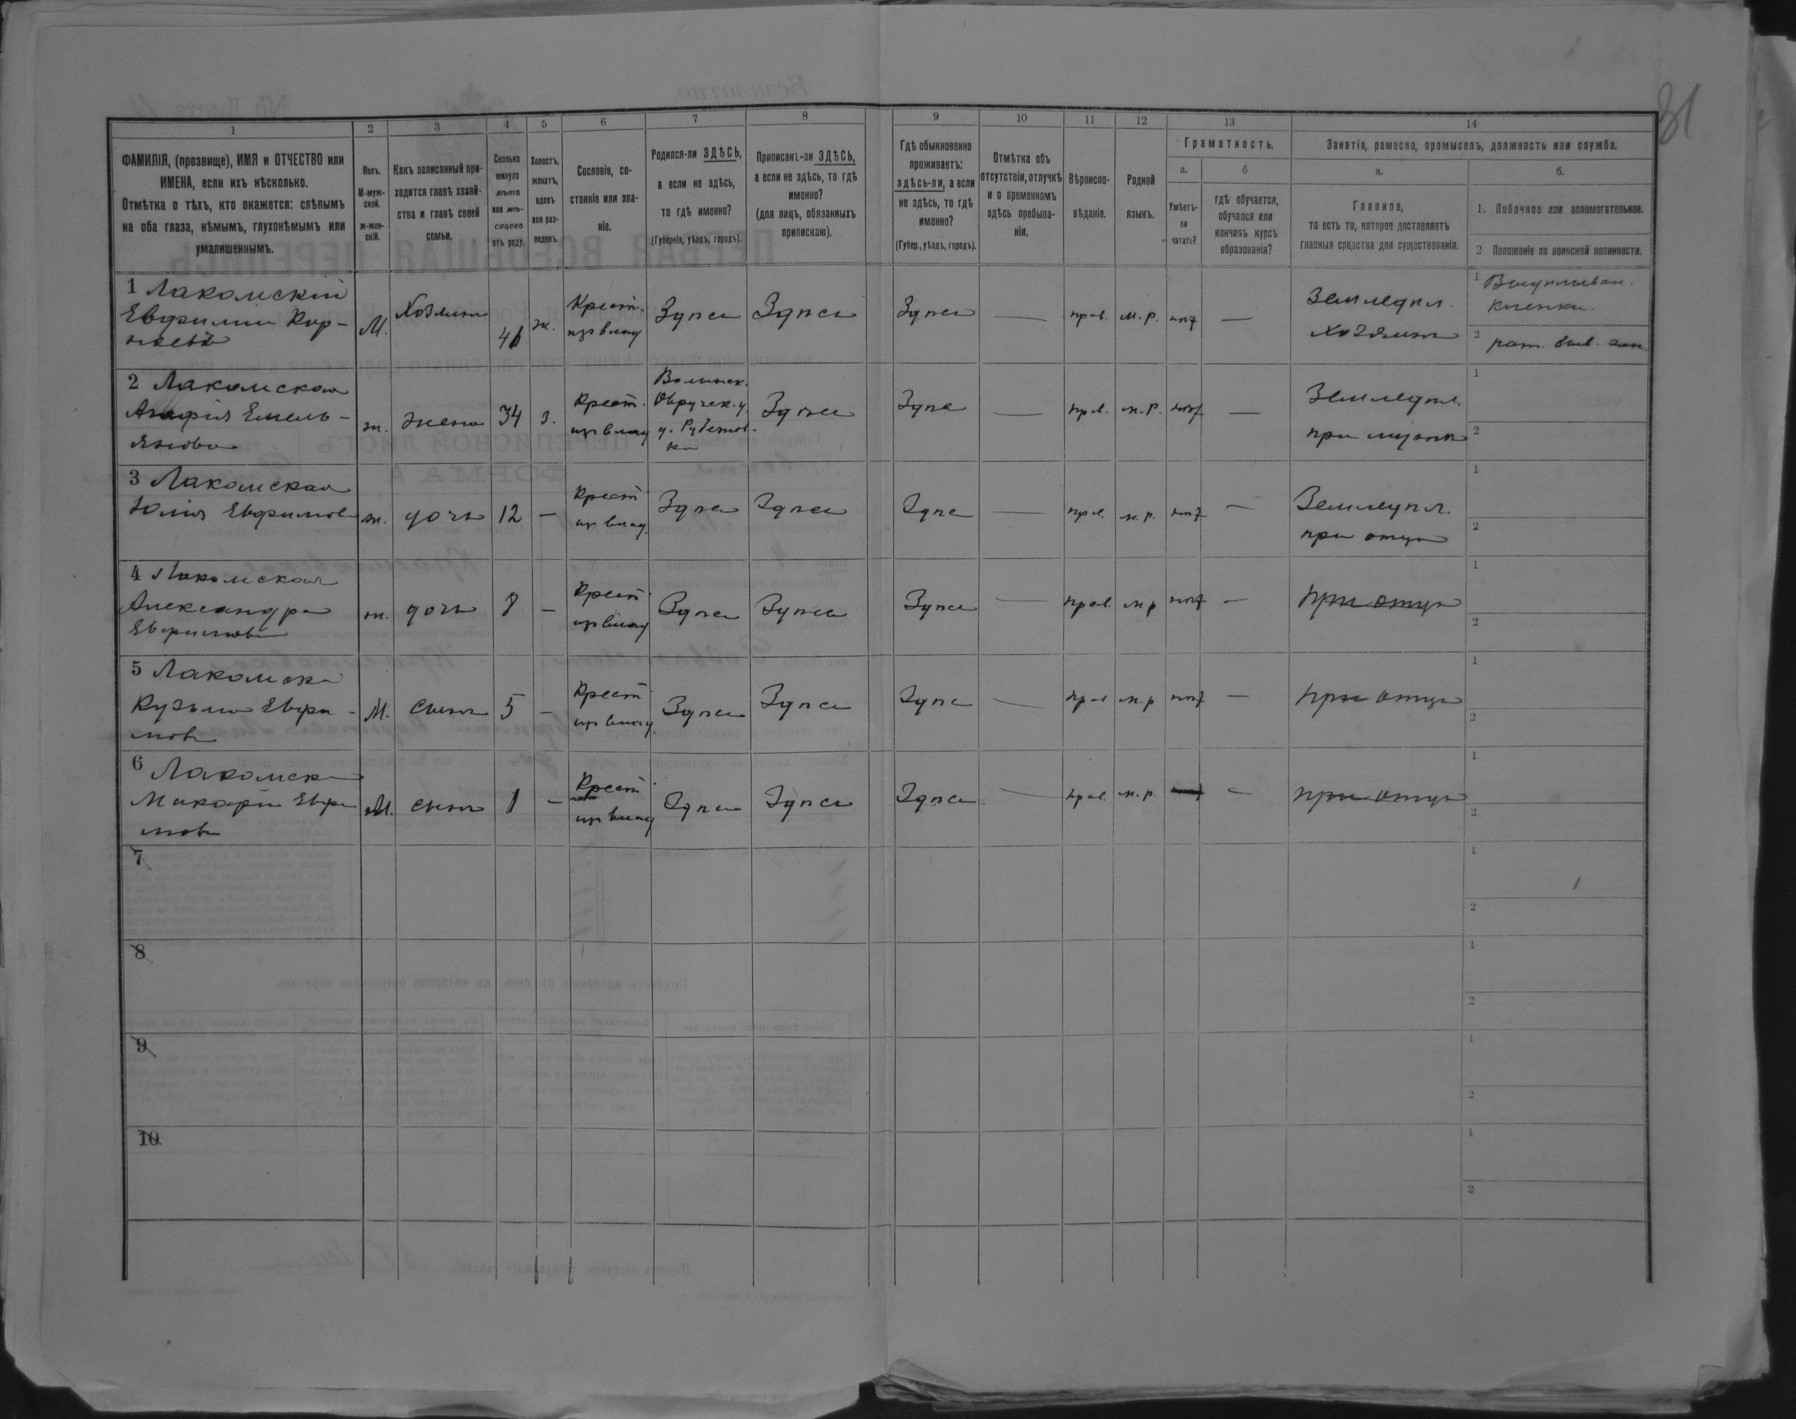 81
1 2 3 4 5 6 7 8 9 10 11 12 13 14
ФАМИЛІЯ, (прозвище), ИМЯ и ОТЧЕСТВО или
ИМЕНА, если ихъ нѣсколько.
Отмѣтка о тѣхъ, кто окажется: слѣпымъ
на оба глаза, нѣмымъ, глухонѣмымъ или
умалишеннымъ.
Полъ.
М-муж-
ской.
ж-жен-
скій.
Какъ записанный при-
ходится главѣ хозяй-
ства и главѣ своей
семьи.
Сколько
минуло
лѣтъ
или мѣ-
сяцевъ
отъ роду.
Холостъ,
женатъ,
вдовъ
или раз-
веденъ.
Сословіе, со-
стояніе или зва-
ніе.
Родился-ли ЗДѢСЬ,
а если не здѣсь,
то гдѣ именно?
(Губернія, уѣздъ, городъ).
Приписанъ-ли ЗДѢСЬ,
а если не здѣсь, то гдѣ
именно?
(для лицъ, обязанныхъ
припискою).
Гдѣ обыкновенно
проживаетъ:
здѣсь-ли, а если
не здѣсь, то гдѣ
именно?
(Губер., уѣздъ, городъ).
Отмѣтка объ
отсутствіи, отлучкѣ
и о временномъ
здѣсь пребыва-
ніи.
Вѣроиспо-
вѣданіе.
Родной
языкъ.
Грамотность.
а.
Умѣетъ-
ли
читать?
б
гдѣ обучается,
обучался или
кончилъ курсъ
образованія?
Занятіе, ремесло, промыселъ, должность или служба.
а.
Главное,
то есть то, которое доставляетъ
главныя средства для существованія.
б.
1. Побочное или вспомогательное.
2 Положеніе по воинской повинности.
1 Лакомскій
Евфимій Кор-
нѣевъ
М.
Хозяинъ
ж.
Крест.
из влад
Здѣсь
Здѣсь
Здѣсь
—
прав.
м.р.
нѣт
—
Земледѣл.
хозяинъ
1
2
2 Лакомская
Агафія Емель-
янова
ж.
жена
34
з.
Крест.
из влад
Волынск.
Овручск. у.
Здѣсь
Здѣсь
—
прав.
м.р.
нѣт
—
Земледѣл.
при мужѣ
1
2
3 Лакомская
Юлія Евфимов
ж.
дочь
12
—
Крест
из влад.
Здѣсь
Здѣсь
Здѣсь
—
прав.
м.р.
нѣт
—
Земледѣл.
при отцѣ
1
2
4 Лакомская
Александра
Евфимова
ж.
дочь
8
—
Крест
из влад
Здѣсь
Здѣсь
Здѣсь
—
прав.
м.р
нѣт
—
при отцѣ
1
2
5 Лакомск
Кузьма Евфи-
мов
М.
сынъ
5
—
Крест
из влад.
Здѣсь
Здѣсь
Здѣсь
—
прав
м.р
нѣт
—
при отцѣ
1
2
6 Лакомск
Макарій Евфи
мов
М.
сынъ
1
—
Крест
из влад
Здѣсь
Здѣсь
Здѣсь
—
прав.
м.р.
—
при отцѣ
1
2
7
1
2
8
1
2
9
1
2
10
1
2